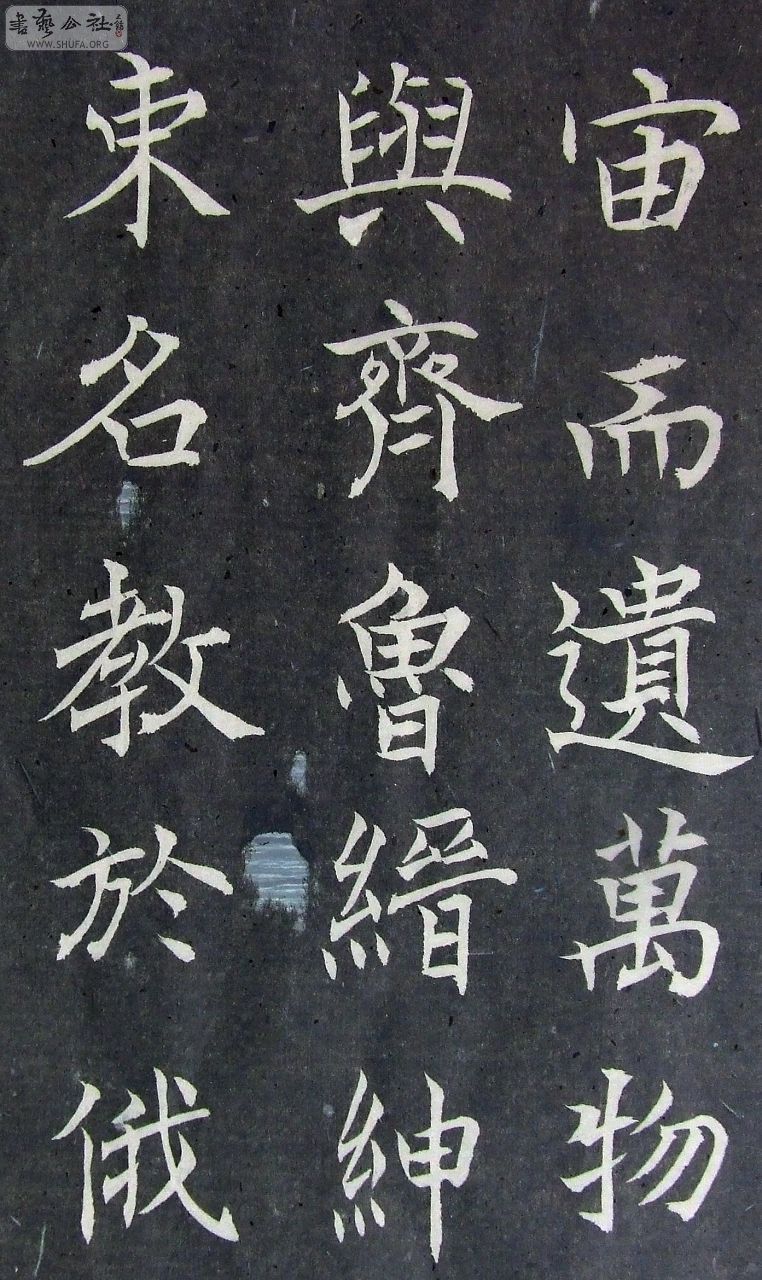 宙而遺萬物
與齊魯縉紳
束名教於俄
書藝公社
WWW.SHUFA.ORG